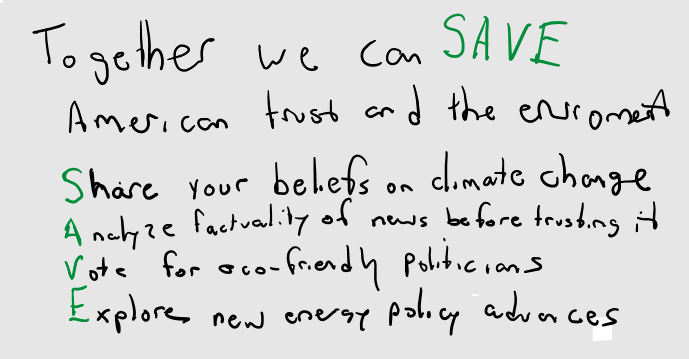 Together we can SAVE
American trust and the enviroment
Share your beliefs on climate change
Analyze factuality of news before trusting it
Vote for eco-friendly politicians
Explore new energy policy advances